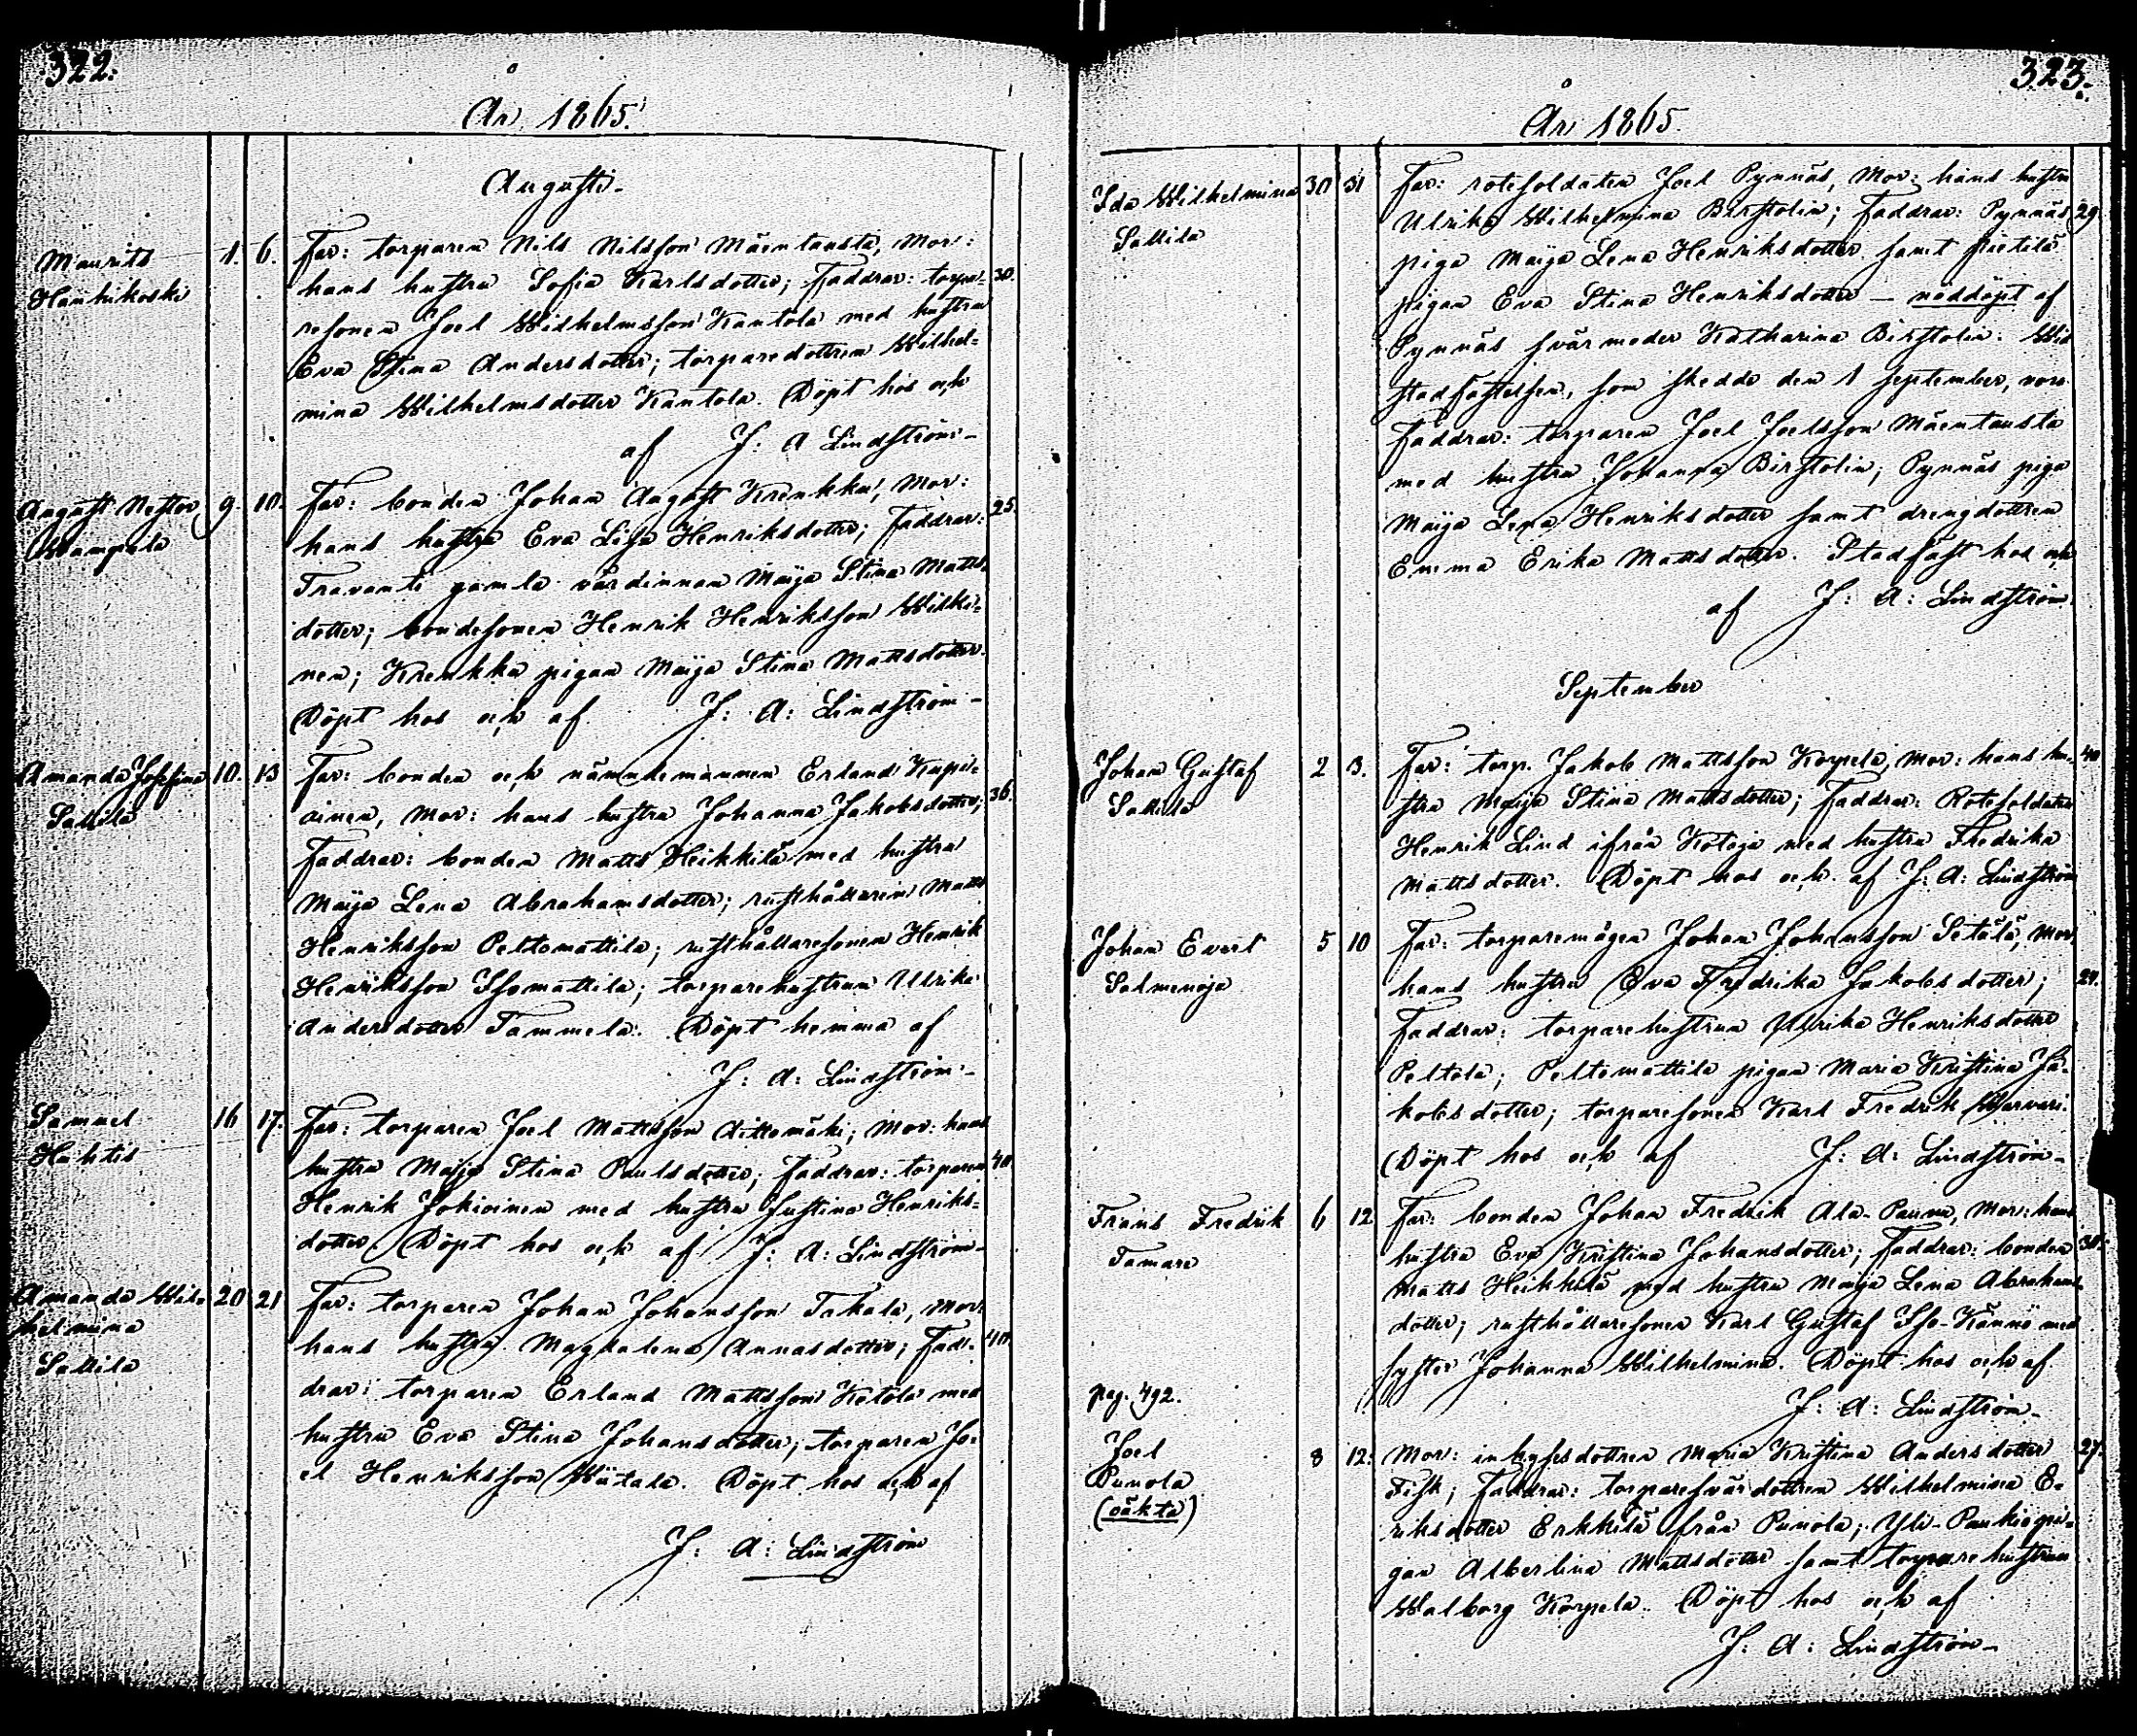 322.
År 1865.
Augusti
Maurits
Hänhikoski
1. 6.
Far: torparen Nils Nilsson Mäentausta, Mor:
hans hustru Sofia Karlsdotter; Faddrar: torpa- 30.
resonen Joel Wilhelmsson Kantola med hustru
Eva Stina Andersdotter; torparedottren Wilhel-
mina Wilhelmsdotter Kantola. Döpt hos och
af J. A Lindström
August Nestor
Wampula
9. 10.
Far: bonden Johan August Krenkku, Mor: 25.
hans hustru Eva Lisa Henriksdotter; Faddrar:
gamla värdinnan Maija Stina Matts-
dotter; bondesonen Henrik Henriksson
nen; pigan Maija Stina Mattsdotter.
Döpt hos och af J: A: Lindström
Amanda Josefina
Sallila
10. 13
Far: bonden och nämndemannen Erland Kupi-
ainen, Mor: hans hustru Johanna Jakobsdotter; 36.
Faddrar: bonden Matts Heikkilä med hustru
Maija Lena Abrahamsdotter; rusthållaren Matts
Henriksson Peltomattila; rusthållaresonen Henrik
Henriksson Isomattila; torparehustrun Ulrika
Andersdotter Tammela. Döpt hemma af
J: A: Lindström
Samuel
Huhtis
16 17.
Far: torparen Joel Mattsson Aittomäki; Mor: hans
hustru Maija Stina Paulsdotter; Faddrar: torparen 40.
Henrik Jokioinen med hustru Justina Henriks-
dotter. Döpt hos och af J: A: Lindström
Amanda Wil-
helmina
Sallila
20 21
Far: torparen Johan Johansson Takala, Mor:
hans hustru Magdalena Annasdotter; Fad- 40.
drar: torparen Erland Mattsson Ketola med
hustru Eva Stina Johansdotter; torparen Jo-
el Henriksson Wiitala. Döpt hos och af
J: A: Lindström
323.
År 1865.
Ida Wilhelmina
Sallila
30 31
Far: rotesoldaten Joel Pynnäs, Mor: hans hustru
Ulrika Wilhelmina Birstolin; Faddrar: Pynnäs 29
piga Maija Lena Henriksdotter samt
pigan Eva Stina Henriksdotter — nöddöpt af
Pynnäs svärmoder Katharina Birstolin. Wid
stadfästelsen, som skedde den 1 september, voro
Faddrar: torparen Joel Joelsson Mäentausta
med hustru Johanna Birstolin; Pynnäs piga
Maija Lena Henriksdotter samt drengdottren
Emma Erika Mattsdotter. Stadfäst hos och
af J: A: Lindström
September
Johan Gustaf
Sallila
2 3.
Far: torp. Jakob Mattsson Korpela; Mor: hans hu- 40
stru Maija Stina Mattsdotter; Faddrar: Rotesoldaten
Henrik Lind ifrån Kötöja med hustru Fredrika
Mattsdotter. Döpt hos och af J: A: Lindström
Johan Evert
Salmenoja
5 10
Far: torparemågen Johan Johansson Setälä, Mor:
hans hustru Eva Fredrika Jakobsdotter;
Faddrar: torparehustrun Ulrika Henriksdotter
Peltola; Peltomattila pigan Maria Kristina Ja-
kobsdotter; torparesonen Karl Fredrik Warvari.
Döpt hos och af J: A: Lindström
Frans Fredrik
Tamare
6 12
Far: bonden Johan Fredrik Ala-Pauna, Mor: hans
hustru Eva Kristina Johansdotter; Faddrar: bonden
Matts Heikkilä med hustru Maija Lena Abrahams-
dotter; rusthållaresonen Karl Gustaf Iso-Kännö med
syster Johanna Wilhelmina. Döpt hos och af
J: A: Lindström
pag. 492.
Joel
Punola
(oäkta)
8 12.
Mor: inhysesdottren Maria Kristina Andersdotter 27.
Fisk; Faddrar: torparesvärdottren Wilhelmina E-
riksdotter Erkkilä från Punola; Yli-Paukio pi-
gan Albertina Mattsdotter samt torparehustrun
Walborg Korpela. Döpt hos och af
J: A: Lindström